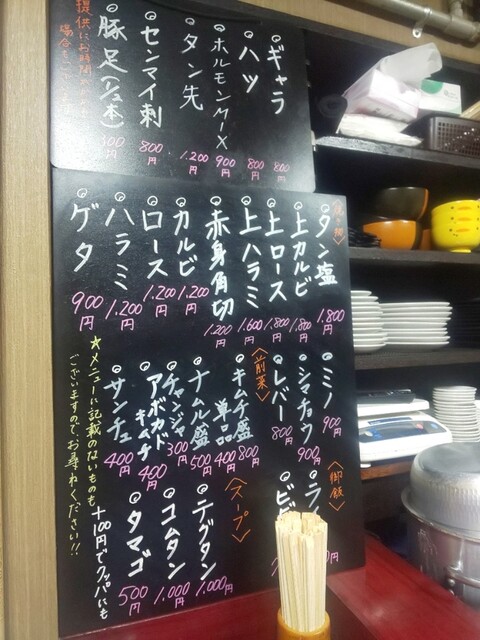 ギャラ 800円
ハツ 800円
ホルモンケーメ 900円
タン先 1,200円
センマイ刺 800円
豚足(1/2本)
提供にお時間
場合も
タン塩 1,800円
上カルビ 1,800円
上ロース 1,800円
上ハラミ 1,600円
赤身角切 1,200円
カルビ 1,200円
ロース 1,200円
ハラミ 1,200円
ゲタ 900円
ミノ 900円
シマチョウ 900円
レバー 800円
〈前菜〉
キムチ盛 800円
単品 400円
ナムル盛 500円
チャンジャ 300円
アボカドキムチ 400円
サンチュ 400円
☆メニューに記載のないものも
ございますので、お尋ねください!!
〈御飯〉
ライ
ビビ
〈スープ〉
テグタン 1,000円
コムタン 1,000円
タマゴ 500円
+100円でクッパにも